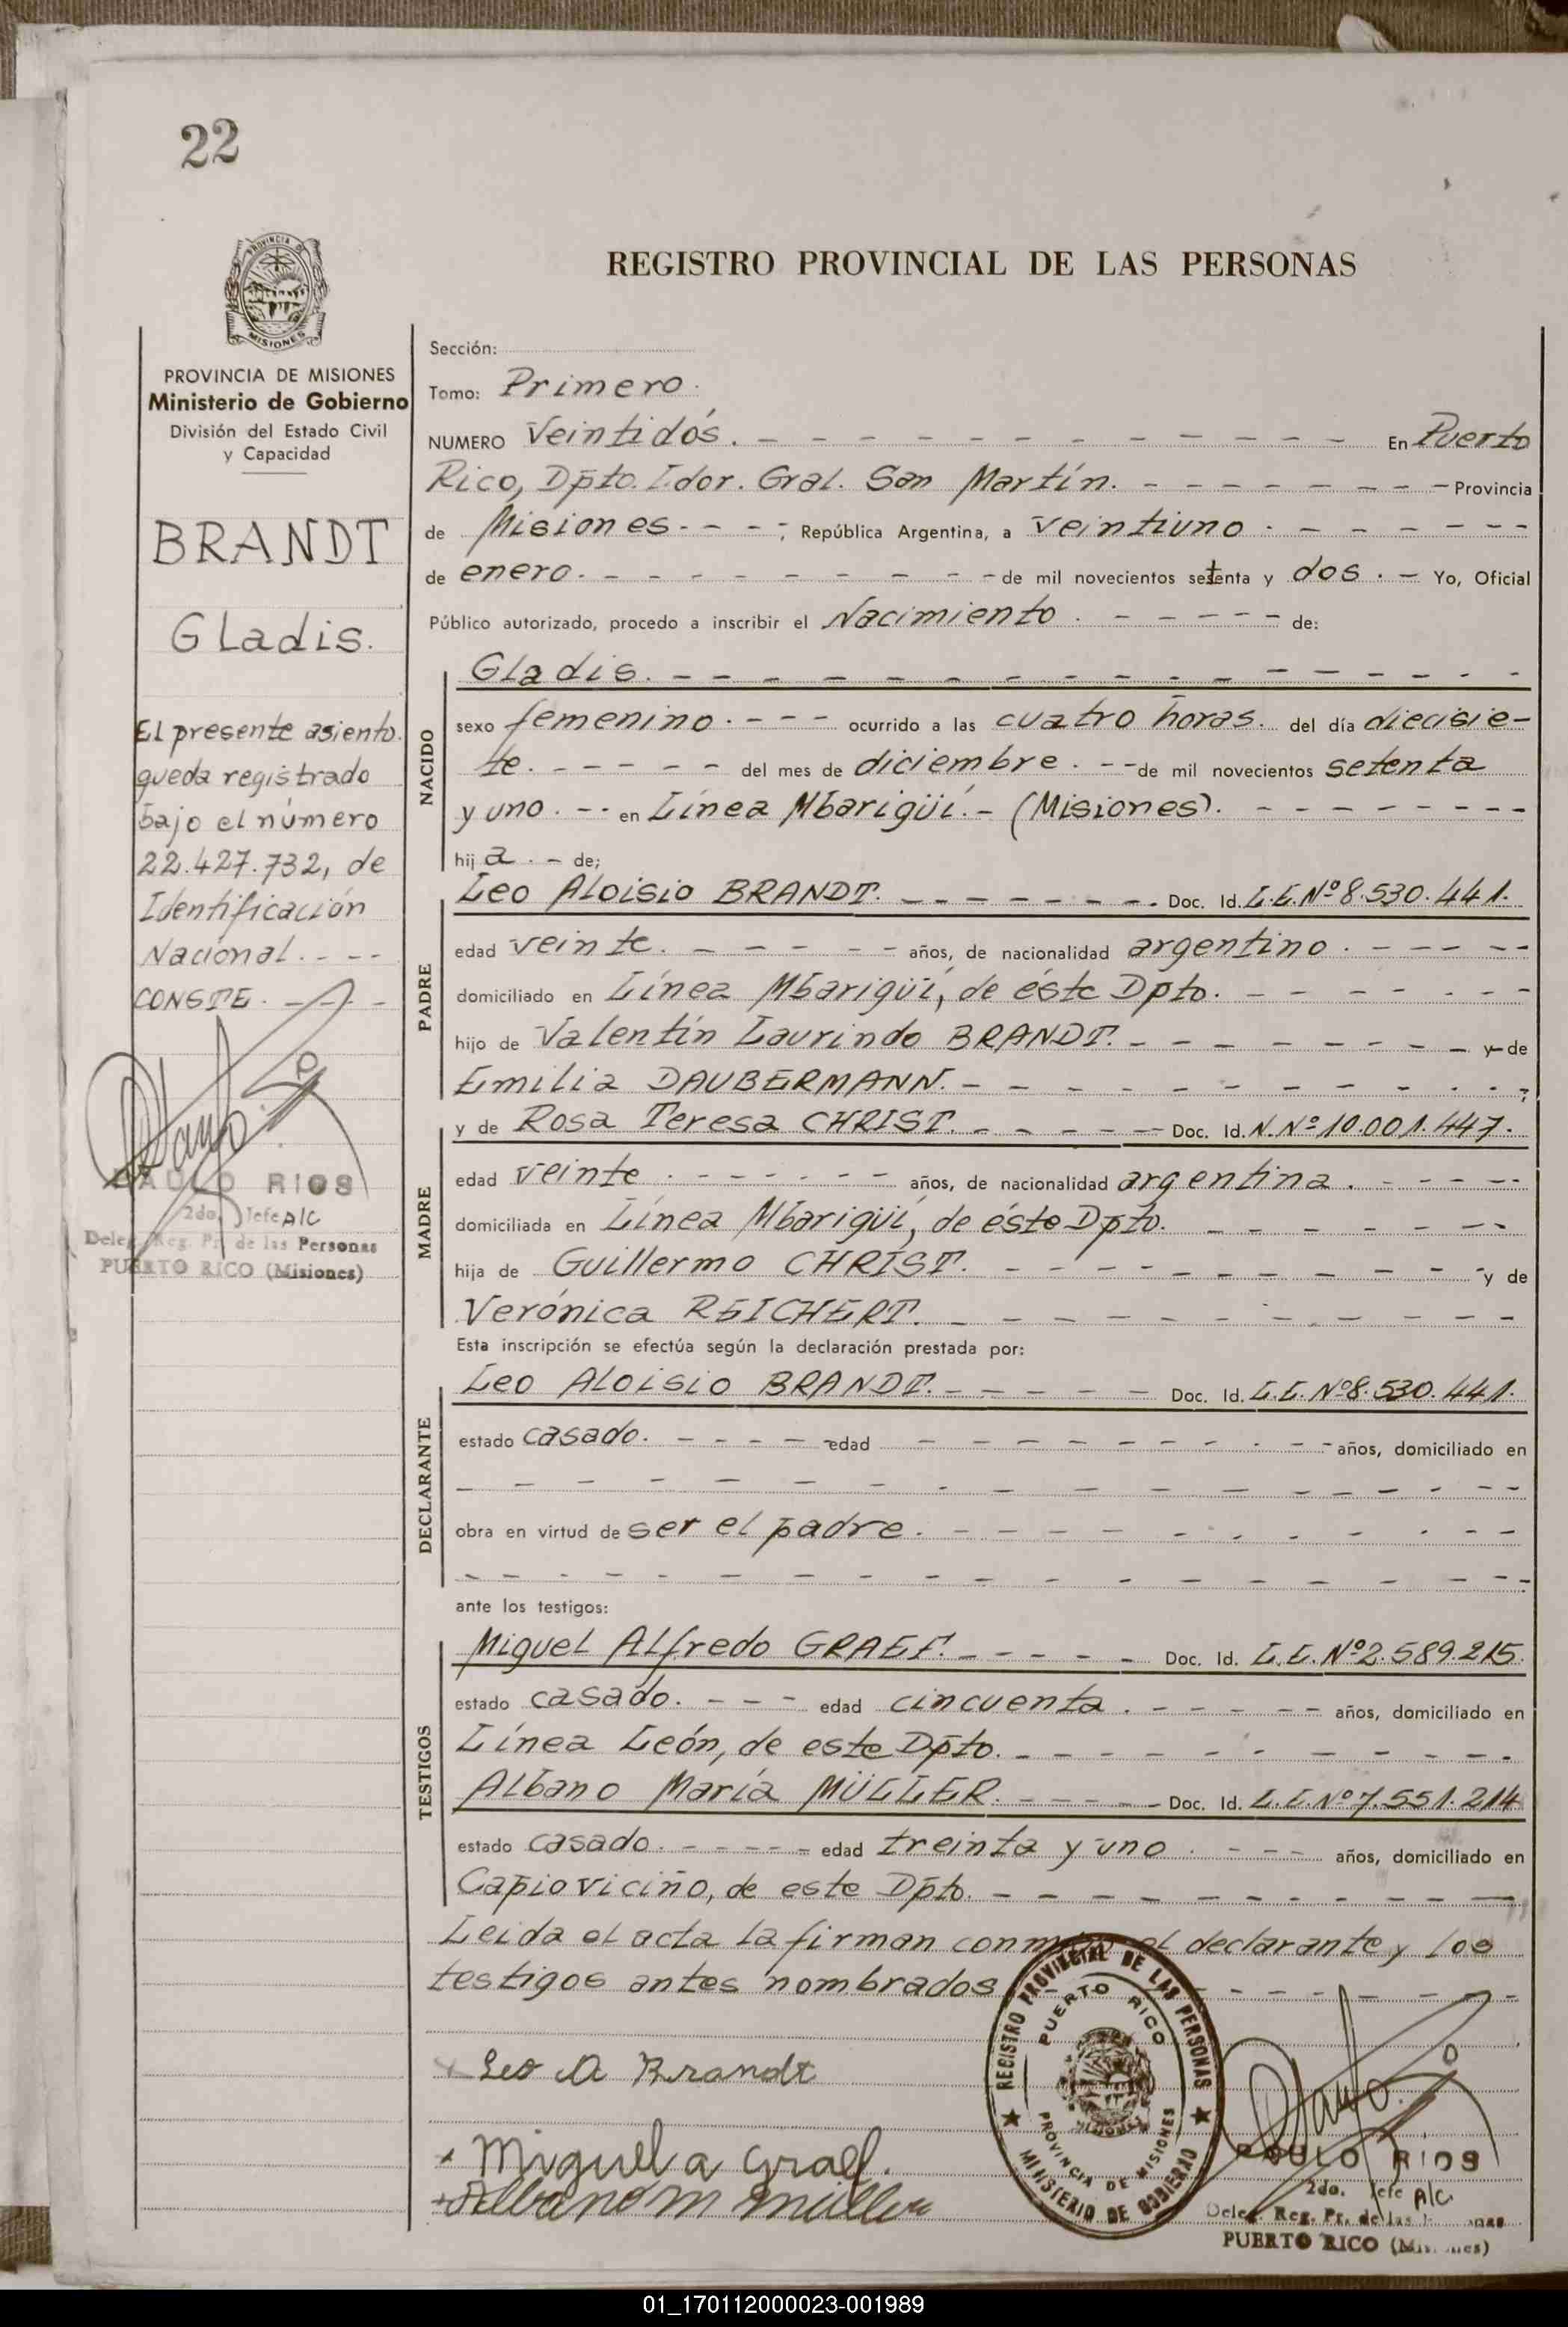 22
PROVINCIA DE
MISIONES
PROVINCIA DE MISIONES
Ministerio de Gobierno
División del Estado Civil
y Capacidad
BRANDT
Gladis.
El presente asiento
queda registrado
bajo el número
22.427.732, de
Identificación
Nacional. - - -
CONSTE. - - -
PAULO RIOS
2do. Jefe A/C
Deleg. Reg. Pr. de las Personas
PUERTO RICO (Misiones)
REGISTRO PROVINCIAL DE LAS PERSONAS
Sección:
Tomo: Primero.
NUMERO Veintidós. - - - En Puerto
Rico, Dpto. Ldor. Gral. San Martín. - - - Provincia
de Misiones - - - ; República Argentina, a veintiuno. - - -
de enero. - - - de mil novecientos setenta y dos. - Yo, Oficial
Público autorizado, procedo a inscribir el Nacimiento. - - - de:
NACIDO
Gladis. - - -
sexo femenino. - - - ocurrido a las cuatro horas. del día diecisie-
te. - - - del mes de diciembre. - - de mil novecientos setenta
y uno. - - en Línea Mbarigüí. - (Misiones). - - -
hija. - de;
PADRE
Leo Aloisio BRANDT. - - - Doc. Id. L.E. Nº 8.530.441.
edad veinte. - - - años, de nacionalidad argentino. - - -
domiciliado en Línea Mbarigüí, de éste Dpto. - - -
hijo de Valentín Laurindo BRANDT. - - - y de
Emilia DAUBERMANN. - - - ;
MADRE
y de Rosa Teresa CHRIST. - - - Doc. Id. N. Nº 10.001.447.
edad veinte. - - - años, de nacionalidad argentina. - - -
domiciliada en Línea Mbarigüí, de éste Dpto. - - -
hija de Guillermo CHRIST. - - - y de
Verónica REICHERT. - - -
Esta inscripción se efectúa según la declaración prestada por:
DECLARANTE
Leo Aloisio BRANDT. - - - Doc. Id. L.E. Nº 8.530.441.
estado casado. - - - edad - - - años, domiciliado en
- - -
obra en virtud de ser el padre. - - -
- - -
ante los testigos:
TESTIGOS
Miguel Alfredo GRAEF. - - - Doc. Id. L.E. Nº 2.589.215.
estado casado. - - - edad cincuenta. - - - años, domiciliado en
Línea León, de este Dpto. - - -
Albano María MÜLLER. - - - Doc. Id. L.E. Nº 7.551.214
estado casado. - - - edad treinta y uno. - - - años, domiciliado en
Capioviciño, de este Dpto. - - -
Leida el acta la firman conmigo el declarante y los
testigos antes nombrados - - -
REGISTRO PROVINCIAL DE LAS PERSONAS
PUERTO RICO
PROVINCIA DE MISIONES
MINISTERIO DE GOBIERNO
x Leo A Brandt
x Miguel a Graef.
x Albano M Müller
PAULO RIOS
2do. Jefe A/C.
Deleg. Reg. Pr. de las Personas
PUERTO RICO (Misiones)
01_170112000023-001989